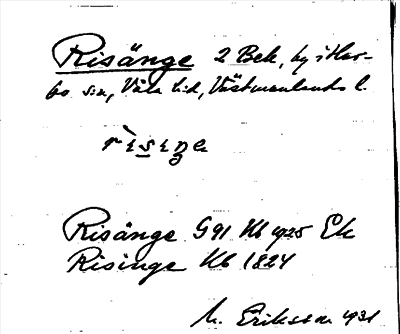 Risänge 2 Bek, by i Har-
bo sn, Våla hd, Västmanlands l.
Risänge G91 Kb 1925 Ek
Risinge Kb 1824
M. Eriksson 1931